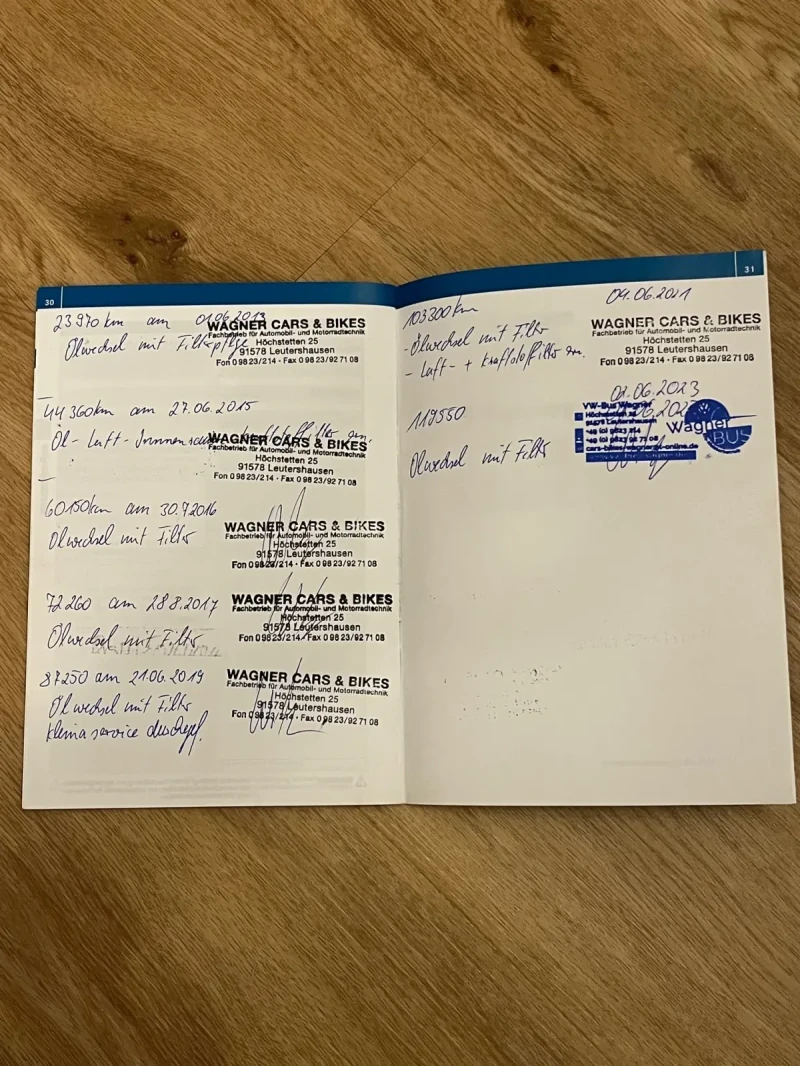 30
23970 km am 01.06.2013
Ölwechsel mit Filter
WAGNER CARS & BIKES
Fachbetrieb für Automobil- und Motorradtechnik
Höchstetten 25
91578 Leutershausen
Fon 0 98 23/214 · Fax 0 98 23/92 71 08
44360km am 27.06.2015
Öl- Luft- Innenraum Kraftstofffilter ern.
WAGNER CARS & BIKES
Fachbetrieb für Automobil- und Motorradtechnik
Höchstetten 25
91578 Leutershausen
Fon 0 98 23/214 · Fax 0 98 23/92 71 08
60150km am 30.7.2016
Ölwechsel mit Filter
WAGNER CARS & BIKES
Fachbetrieb für Automobil- und Motorradtechnik
Höchstetten 25
91578 Leutershausen
Fon 0 98 23/214 · Fax 0 98 23/92 71 08
72260 am 28.8.2017
Ölwechsel mit Filter
WAGNER CARS & BIKES
Fachbetrieb für Automobil- und Motorradtechnik
Höchstetten 25
91578 Leutershausen
Fon 0 98 23/214 · Fax 0 98 23/92 71 08
87250 am 21.06.2019
Ölwechsel mit Filter
Klimaservice
WAGNER CARS & BIKES
Fachbetrieb für Automobil- und Motorradtechnik
Höchstetten 25
91578 Leutershausen
Fon 0 98 23/214 · Fax 0 98 23/92 71 08
31
103300km 09.06.2021
- Ölwechsel mit Filter
- Luft- + Kraftstoffilter ern.
WAGNER CARS & BIKES
Fachbetrieb für Automobil- und Motorradtechnik
Höchstetten 25
91578 Leutershausen
Fon 0 98 23/214 · Fax 0 98 23/92 71 08
119550
Ölwechsel mit Filter
.06.2023
VW-Bus Wagner
Höchstetten
91578 Leutershausen
+49 (0) 9823 214
+49 (0) 9823 92 71 08
Wagner
BUS